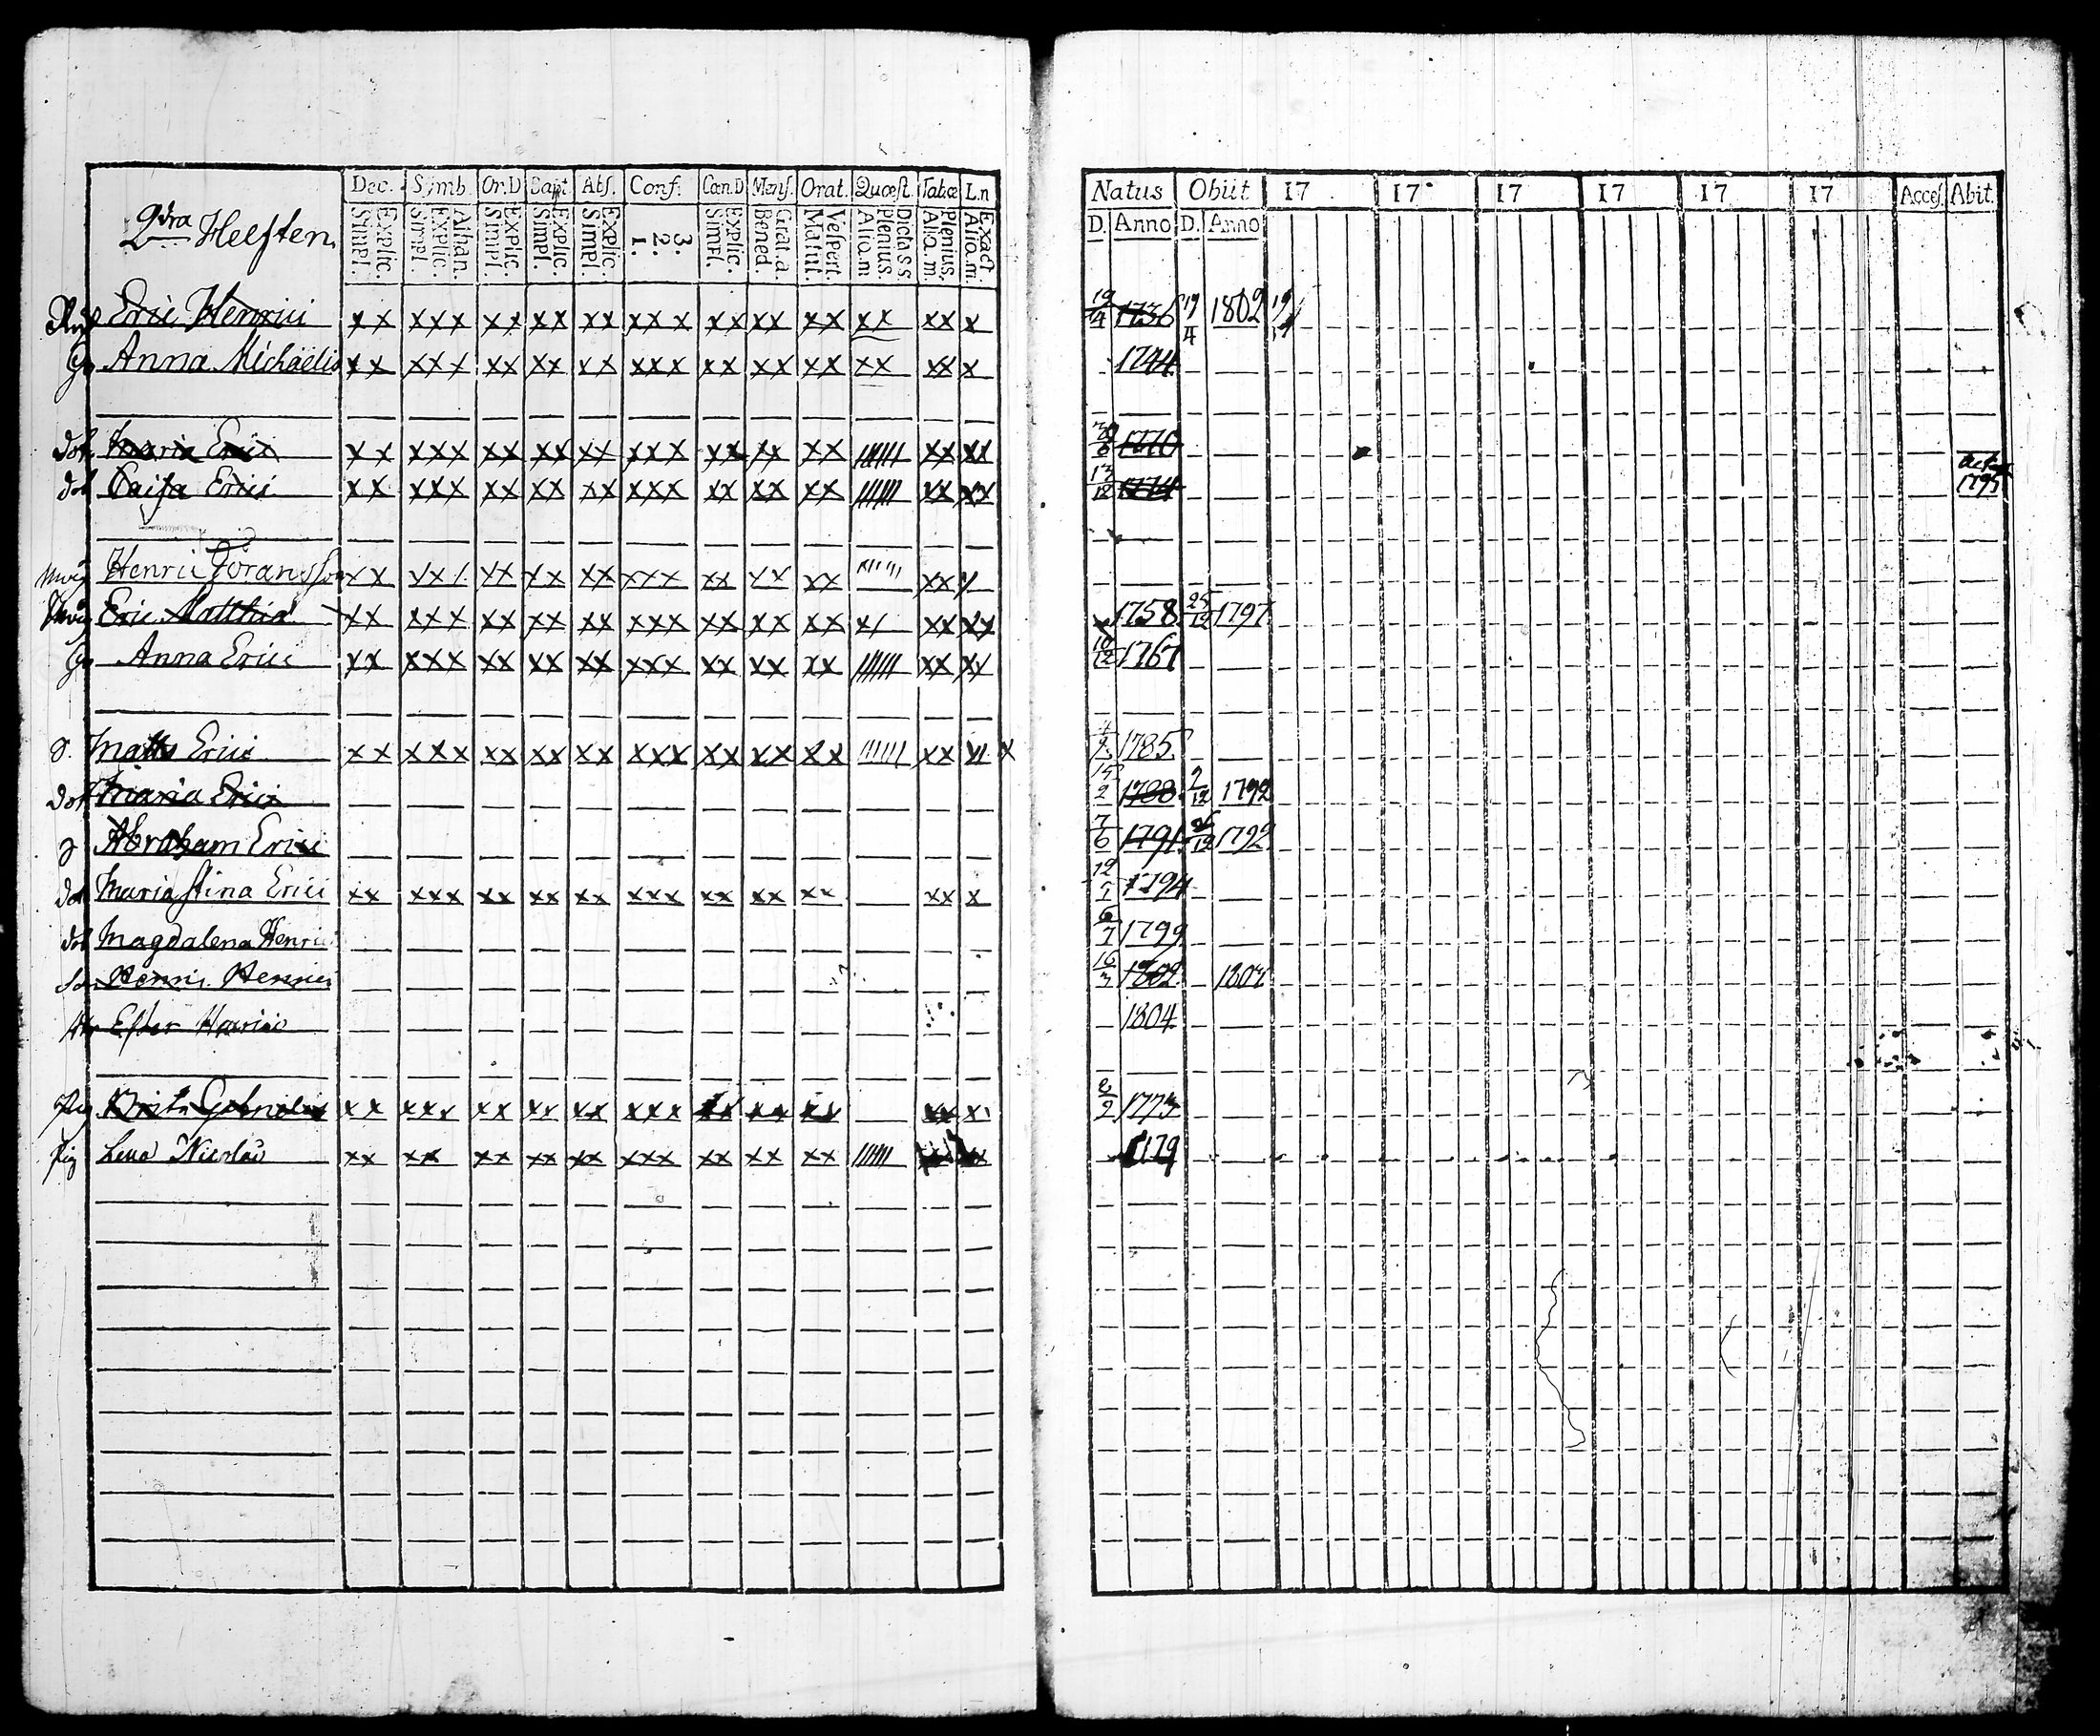 2dra Helften.
Dec. Symb. Or.D Bapt. Abs. Conf. Cœn.D Mens. Orat. Quæst. Tabœ L.n
Explic. Simpl. Athan. Explic. Simpl. Explic. Simpl. Explic. Simpl. Explic. Simpl. 3. 2. 1. Explic. Simpl. Grat.a. Bened. Vespert. Matut. Dicta s s. Plenius. Aliq.m Plenius. Aliq.m. Exact Aliq.m.
Natus Obiit 17 17 17 17 17 17 Acces. Abit.
D. Anno D. Anno
Eric Henrici xx xxx xx xx xx xxx xx xx xx xx xx x 19/4 1736 19/4 1802
Anna Michaelis xx xxx xx xx xx xxx xx xx xx xx xx x 1744
dot. Maria Erici xx xxx xx xx xx xxx xx xx xx |||||| xx xx 1770
dot Caisa Erici xx xxx xx xx xx xxx xx xx xx |||||| xx xx 13/12 1774
Henric Göransson xx xxx xx xx xx xxx xx xx xx |||||| xx x
Eric Matthiæ xx xxx xx xx xx xxx xx xx xx xx xx xx 1758 25/12 1797
Anna Erici xx xxx xx xx xx xxx xx xx xx |||||| xx xx 10/12 1767
Matts Erici xx xxx xx xx xx xxx xx xx xx |||||| xx xx x 1785
dot Maria Erici 15/2 1788 2/12 1792
Abraham Erici 7/6 1791 1792
dot Maria Stina Erici xx xxx xx xx xx xxx xx xx xx xx x 1794
dot Magdalena Henrici 6/7 1799
Henric Henrici 16/3 1802
Ester 1804
Pig xx xxx xx xx xx xxx xx xx xx xx x 1773
Pig Lena xx xx xx xx xx xxx xx xx xx ||||||